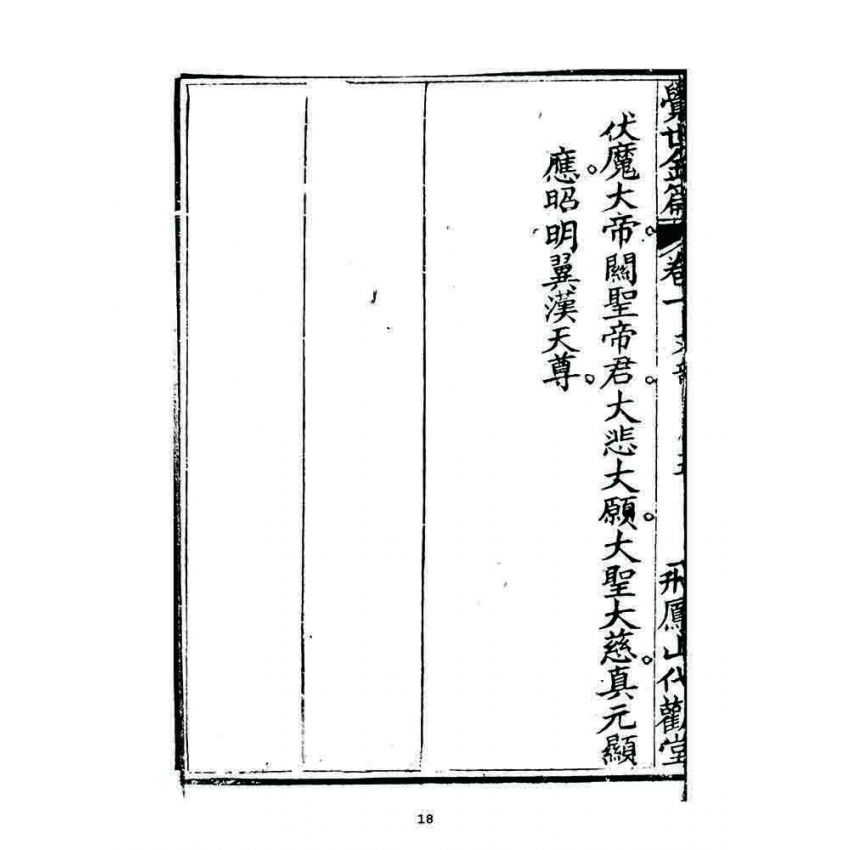 覺世金篇 卷一 飛鳳山代勸堂
伏魔大帝。關聖帝君。大悲大願。大聖大慈。真元顯
應。昭明翼漢天尊。
18